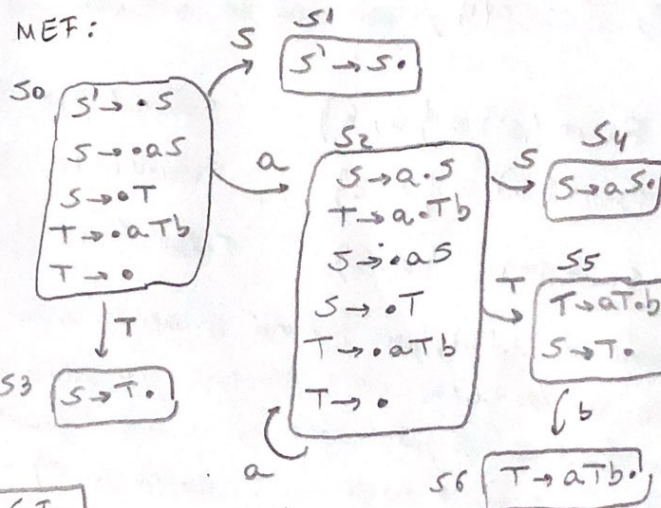 MEF:
S0
S' → •S
S → •aS
S → •T
T → •aTb
T → •
S
S1
S' → S•
a
S2
S → a•S
T → a•Tb
S → •aS
S → •T
T → •aTb
T → •
a
S
S4
S → aS•
T
S5
T → aT•b
S → T•
b
S6
T → aTb•
T
S3
S → T•